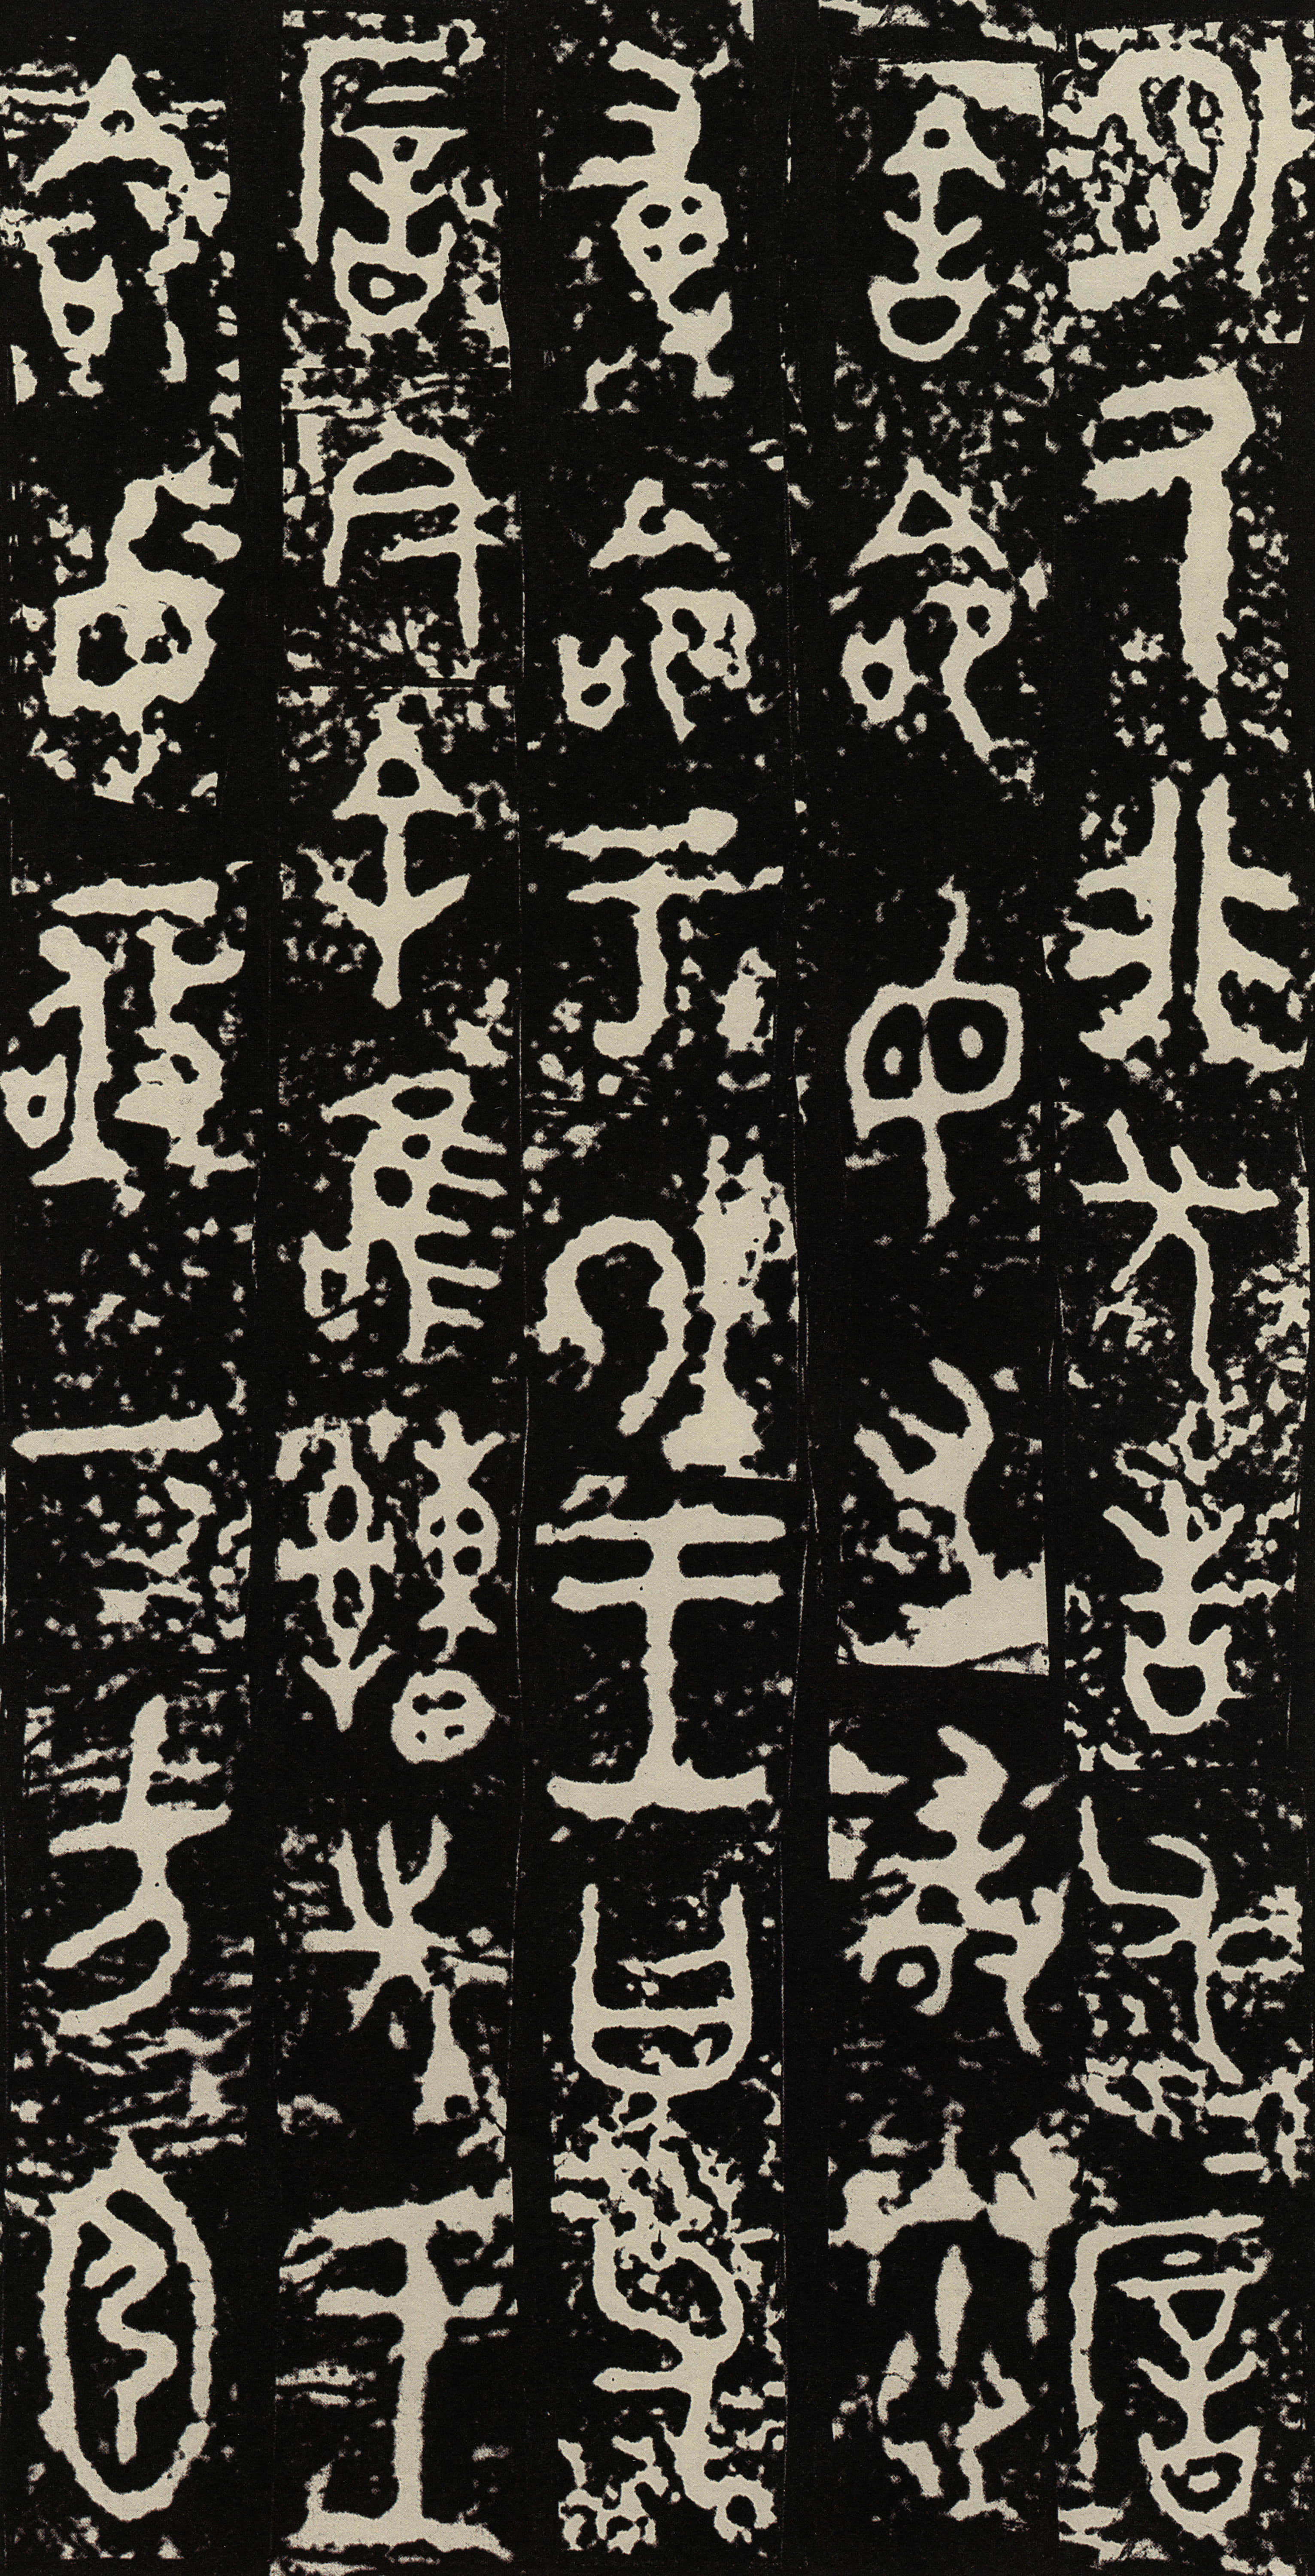 外厥非先告父厝
舍命毋又敢憃
尃命于外王曰父
厝今余唯𤕌先王
命女亟一方圅